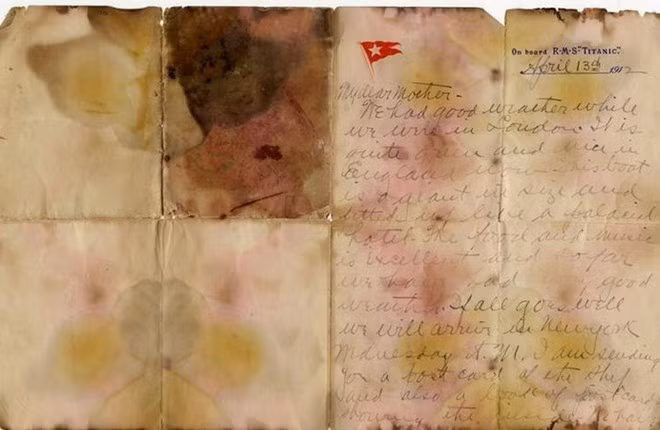 On board R·M·S·"TITANIC".
April 13th 1912
My dear Mother-
We had good weather while
we were in London. It is
quite green and nice in
England now. This boat
is a giant in size and
fitted up like a palacial
hotel. The food and music
is excellent and so far
we have had good
weather. If all goes well
we will arrive in New York
Wednesday A.M. I am sending
you a post card of the ship
and also a book of post cards
showing the inside